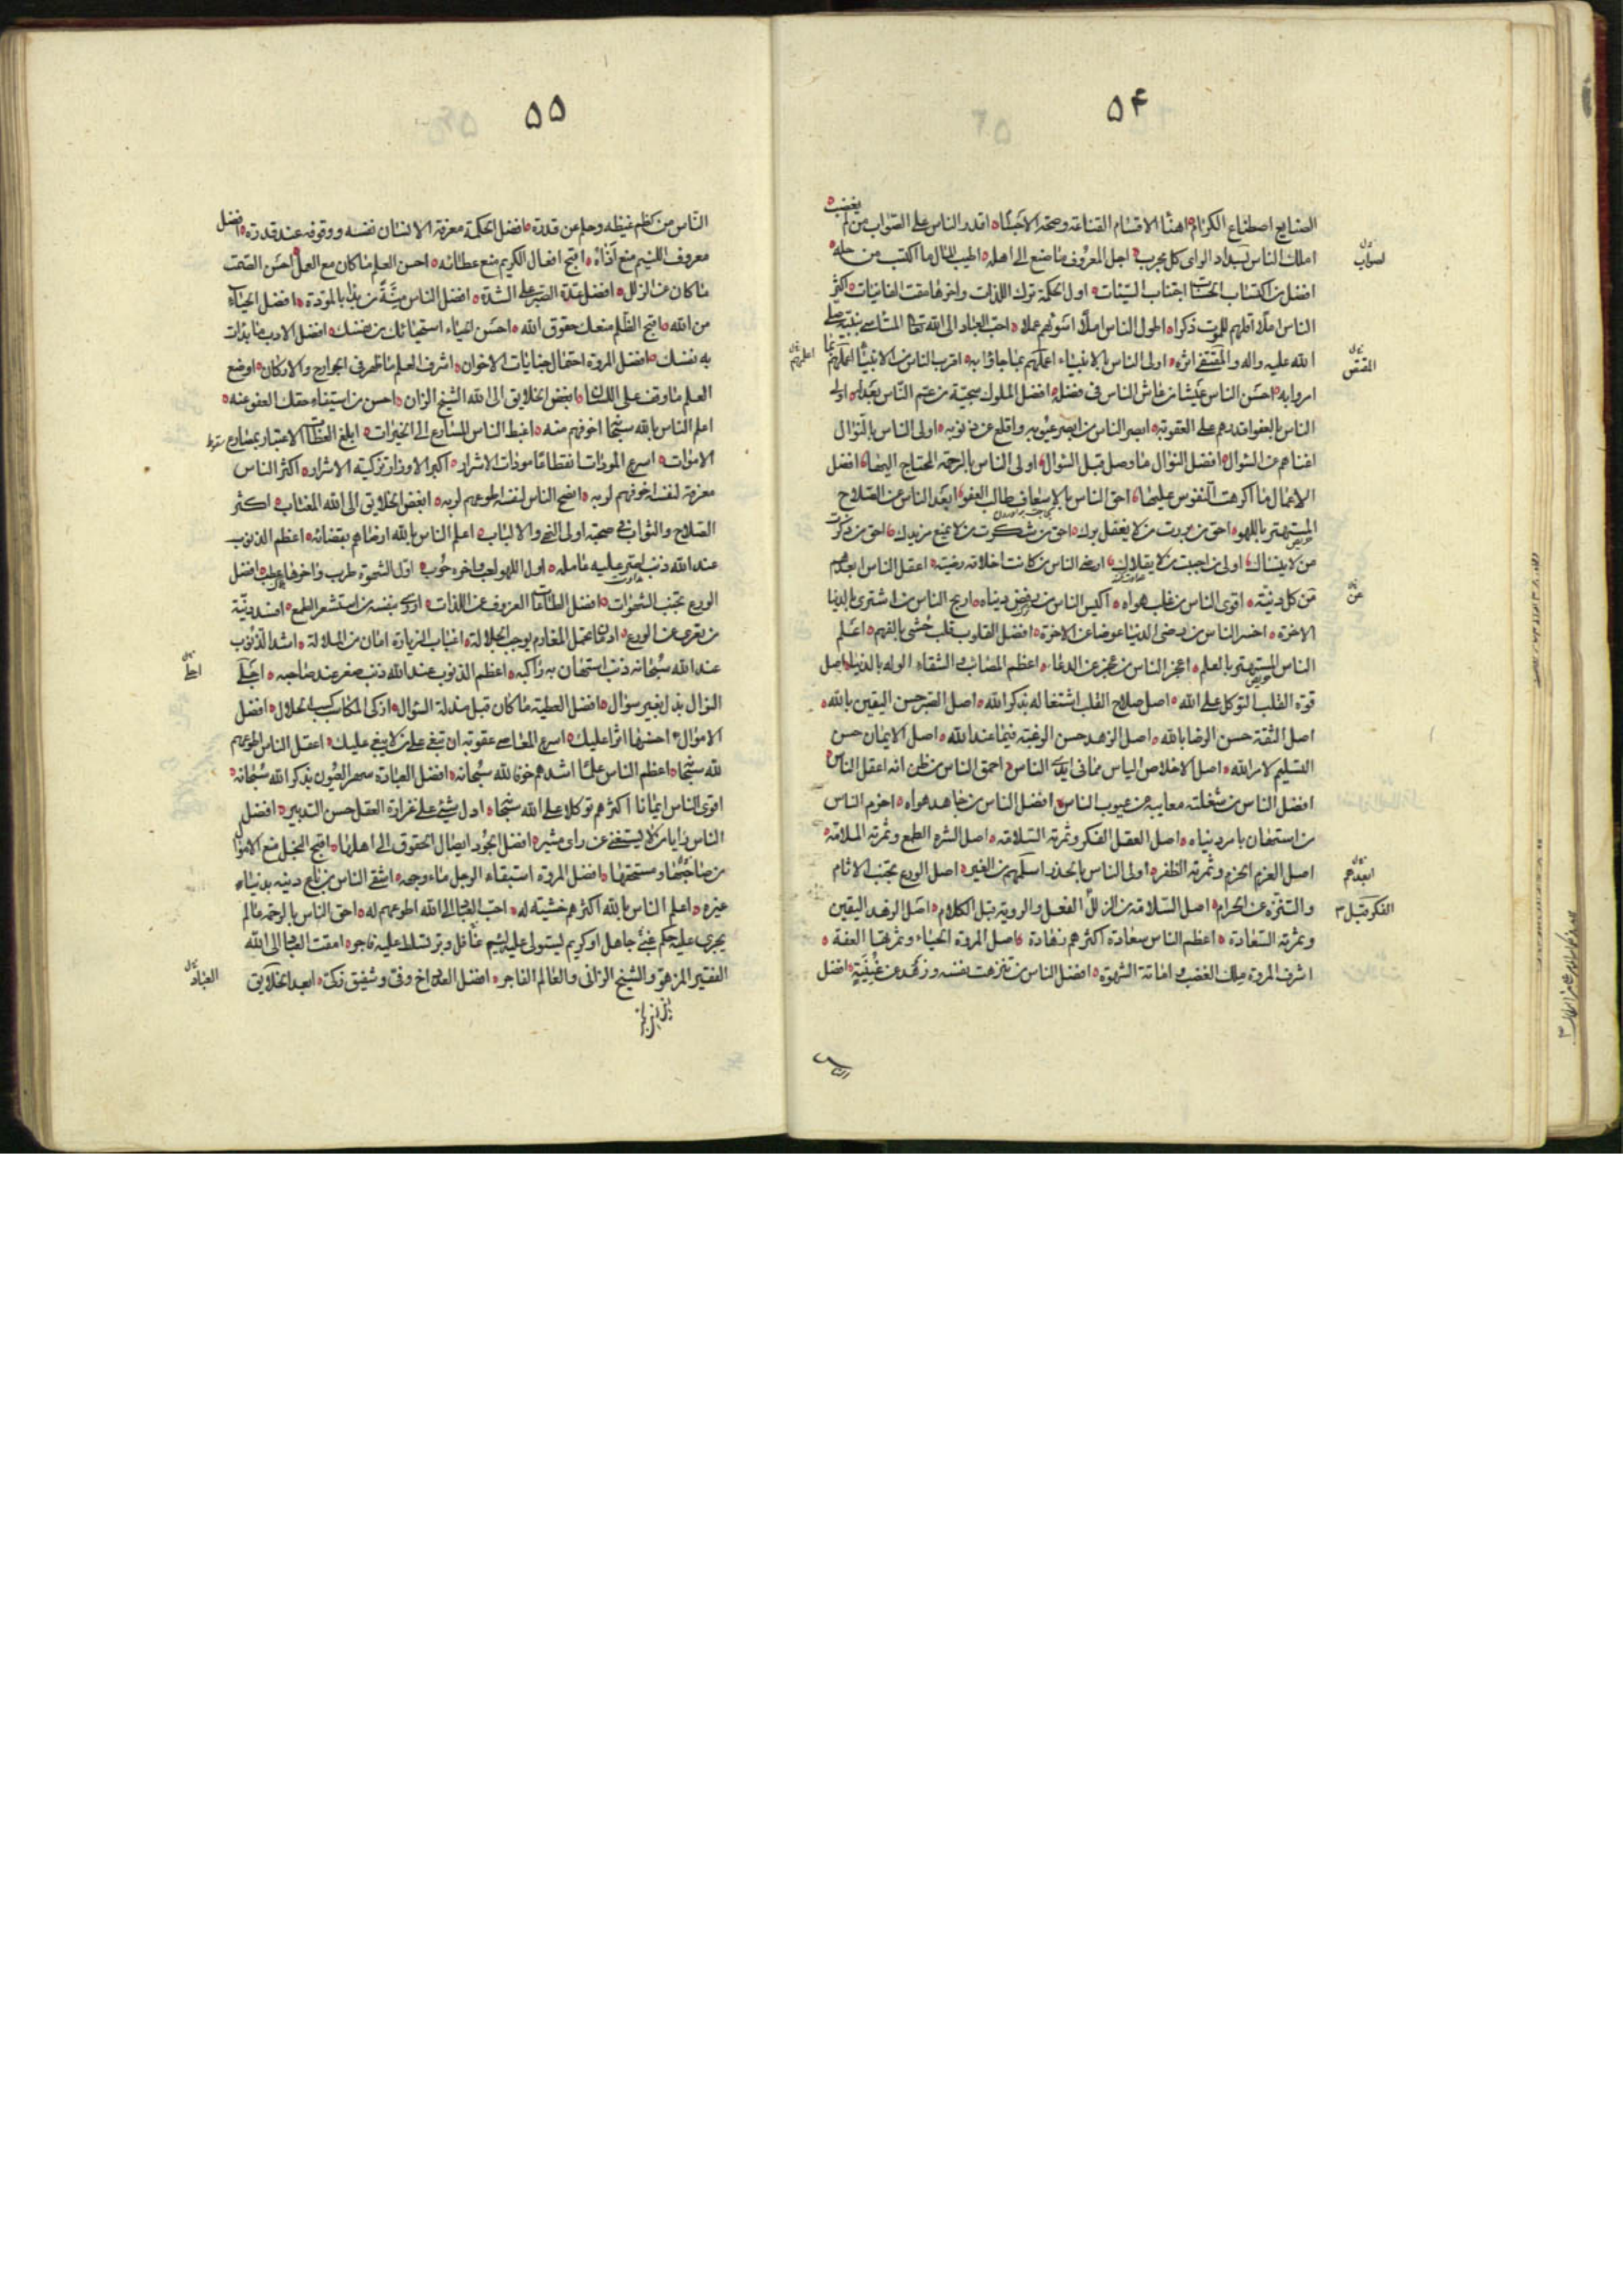 ۵۴
الصنايع اصطناع الكرام اهنأ الاقسام القناعة وصحة الاجساد اقدر الناس على الصواب من لم يغضب
املك الناس لسداد الراى كل مجرب اجل المعروف ما صنع الى اهله اطيب المال ما اكتسب من حله
افضل من اكتساب الحسنات اجتناب السيئات اول الحكمة ترك اللذات واخرها مقت الفانيات اكثر
الناس املا اقلهم للموت ذكرا اطول الناس املا اسوئهم عملا احب العباد الى الله تعالى المتاسى بنبيه صلى
الله عليه واله والمقتفى اثره اولى الناس بالانبياء اعملهم بما جاؤا به اقرب الناس من الانبياء اعملهم بما
امروا به احسن الناس عيشا من عاش الناس فى فضله افضل الملوك سجية من عم الناس بعدله اولى
الناس بالعفو اقدرهم على العقوبة ابصر الناس من ابصر عيوبه واقلع عن ذنوبه اولى الناس بالنوال
اغناهم عن السوال افضل النوال ما وصل قبل السوال اولى الناس بالرحمة المحتاج اليها افضل
الاعمال ما اكرهت النفوس عليها احق الناس بالاسعاف طالب العفو ابعد الناس عن الصلاح
المستهتر باللهو احق من بررت من لا يغفل برك احق من شكرت من لا يمنع مزيدك احق من ذكرت
من لا ينساك اولى من احببت من لا يقلاك ارضى الناس من كانت اخلاقه رضية اعقل الناس ابعدهم
عن كل دنية اقوى الناس من غلب هواه اكيس الناس من رفض دنياه اربح الناس من اشترى بالدنيا
الاخرة اخسر الناس من رضى الدنيا عوضا عن الاخرة افضل القلوب قلب حشى بالفهم اعلم
الناس المستهتر بالعلم اعجز الناس من عجز عن الدعاء اعظم المصائب والشقاء الوله بالدنيا اصل
قوة القلب التوكل على الله اصل صلاح القلب اشتغاله بذكر الله اصل الصبر حسن اليقين بالله
اصل الثقة حسن الرضا بالله اصل الزهد حسن الرغبة فيما عند الله اصل الايمان حسن
التسليم لامر الله اصل الاخلاص الياس مما فى ايدى الناس احمق الناس من ظن انه اعقل الناس
افضل الناس من شغلته معايبه عن عيوب الناس افضل الناس من جاهد هواه احزم الناس
من استهان بامر دنياه اصل العقل الفكر وثمرته السلامة اصل الشره الطمع وثمرته الملامة
اصل العزم الحزم وثمرته الظفر اولى الناس بالحذر اسلمهم من الغير اصل الورع تجنب الاثام
والتنزه عن الحرام اصل السلامة من الزلل الفعل والروية قبل الكلام اصل الزهد اليقين
وثمرته السعادة اعظم الناس سعادة اكثرهم زهادة اصل المروة الحياء وثمرتها العفة
اشرف المروة ملك الغضب واماتة الشهوة افضل الناس من تنزهت نفسه وزهد عن غنية افضل
الناس
ابعدهم
الفكر قبل
عن
۵۵
الناس من كظم غيظه وحلم عن قدرة افضل الحكمة معرفة الانسان نفسه ووقوفه عند قدره افضل
معروف اللئيم منع اذاه اقبح افعال الكريم منع عطائه احسن العلم ما كان مع العمل احسن الصمت
ما كان عن الزلل افضل عدة الصبر على الشدة افضل الناس منة من بدأ بالمودة افضل الحياء
من الله اقبح الظلم منعك حقوق الله احسن الحياء استحيائك من نفسك افضل الادب ما بدأت
به نفسك افضل المروة احتمال جنايات الاخوان اشرف العلم ما ظهر فى الجوارح والاركان اوضع
العلم ما وقف على اللسان ابغض الخلايق الى الله الشيخ الزان احسن من استيفاء حقك العفو عنه
اعلم الناس بالله سبحانه اخوفهم منه اغبط الناس المسارع الى الخيرات ابلغ العظات الاعتبار بمصارع
الاموات اسرع المودات انقطاعا مودات الاشرار اكبر الاوزار تزكية الاشرار اكثر الناس
معرفة لنفسه اخوفهم لربه انصح الناس لنفسه اطوعهم لربه ابغض الخلايق الى الله المغتاب اكثر
الصلاح والثواب فى صحبة اولى النهى والالباب اعلم الناس بالله ارضاهم بقضائه اعظم الذنوب
عند الله ذنب اصر عليه عامله اول اللهو لعب واخره حرب اول الشهوة طرب واخرها عطب افضل
الورع تجنب الشهوات افضل الطاعات العزوف عن اللذات ازرى بنفسه من استشعر الطمع افسد دينه
من تعرى عن الورع ان تحمل المغارم يوجب الجلالة اغباب الزيارة امان من الملالة اشد الذنوب
عند الله سبحانه ذنب استهان به راكبه اعظم الذنوب عند الله ذنب صغر عند صاحبه اجل
النوال بذل بغير سوال افضل العطية ما كان قبل مذلة السوال ازكى المكاسب كسب الحلال افضل
الاموال احسنها اثرا عليك اسرع المعاصى عقوبة ان تبغى على من لا يبغى عليك اعقل الناس اطوعهم
لله سبحانه اعظم الناس علما اشدهم خوفا لله سبحانه افضل العبادة سهر العيون بذكر الله سبحانه
اقوى الناس ايمانا اكثرهم توكلا على الله سبحانه ادل شىء على غزارة العقل حسن التدبير افضل
الناس رايا من لا يستغنى عن راى مشير افضل الجود ايصال الحقوق الى اهلها اقبح البخل منع الاموال
من مستحقها افضل المروة استبقاء الرجل ماء وجهه اشقى الناس من باع دينه بدنياه
غيره اعلم الناس بالله اكثرهم خشية له احب العباد الى الله اطوعهم له احق الناس بالرحمة عالم
يجرى عليه حكم جاهل او كريم يستولى عليه لئيم وبر تسلط عليه فاجر امقت العباد الى الله
الفقير المزهو والشيخ الزانى والعالم الفاجر افضل العدد اخ وفى وشفيق زكى ابعد الخلايق
العباد